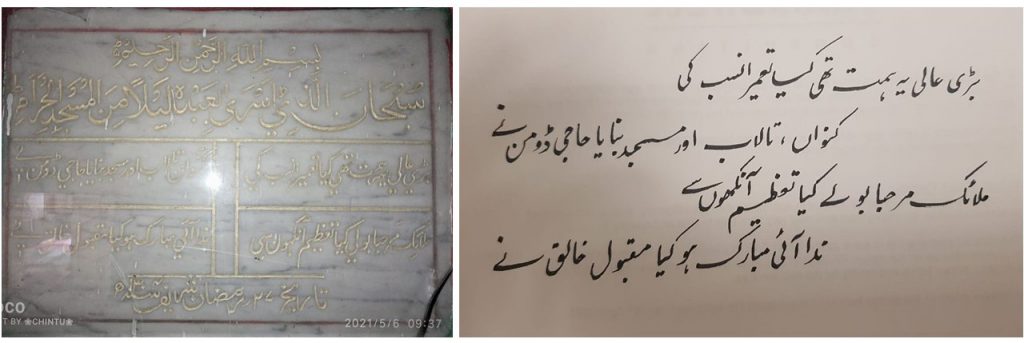 بسم الله الرحمن الرحيم
سبحان الذي اسرى بعبده ليلا من المسجد الحرام
بڑی عالی یہ ہمت تھی کیا تعمیر انسب کی
کنواں تالاب اور مسجد بنایا حاجی ڈومن نے
ملائک مرحبا بولے کیا تعظیم آنکھوں سے
ندا آئی مبارک ہو کیا مقبول خالق نے
تاریخ ٢٧ رمضان شریف
OCO
T BY ❀CHINTU❀
2021/5/6 09:37
بڑی عالی یہ ہمت تھی کیا تعمیر انسب کی
کنواں ، تالاب اور مسجد بنایا حاجی ڈومن نے
ملائک مرحبا بولے کیا تعظیم آنکھوں سے
ندا آئی مبارک ہو کیا مقبول خالق نے